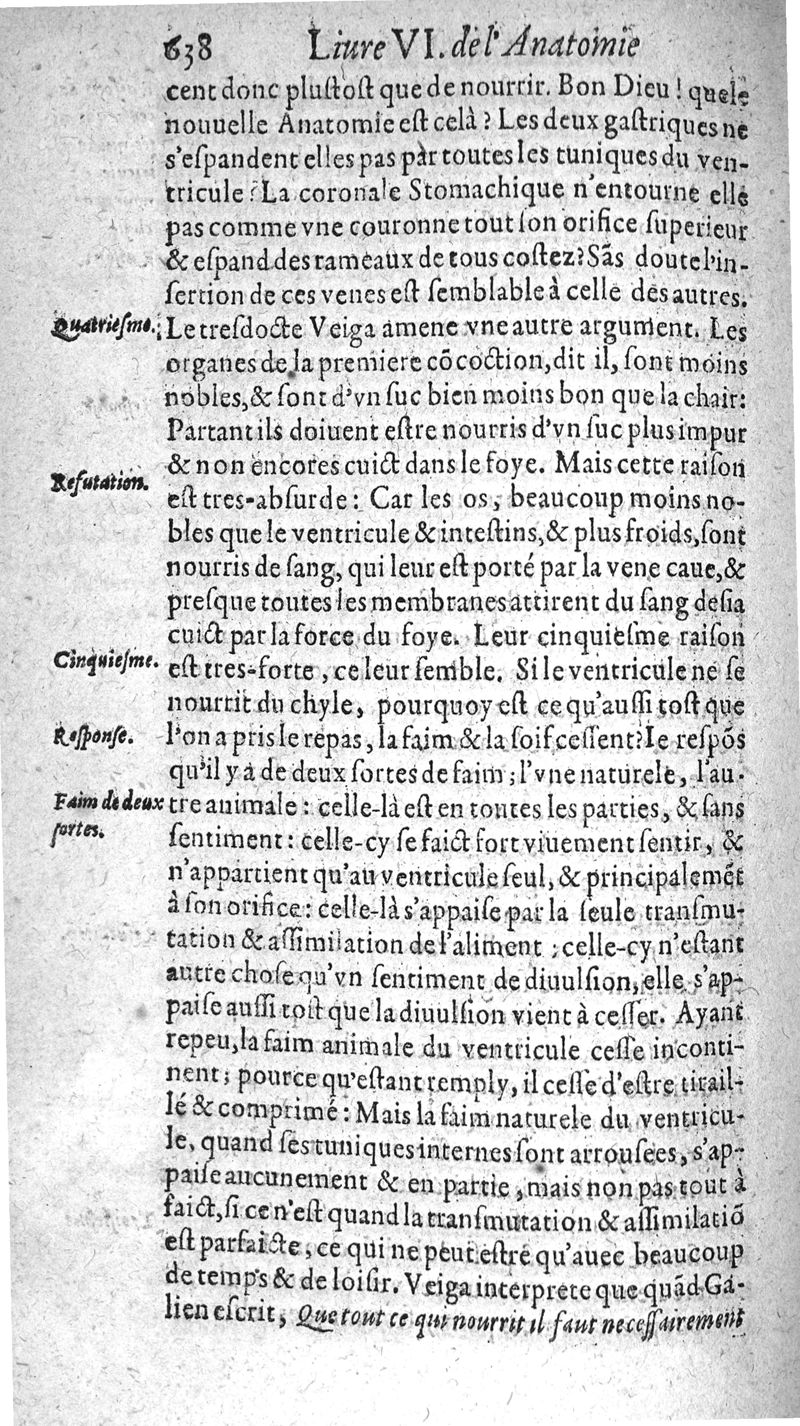 638 Liure VI. de l'Anatomie
cent donc plustost que de nourrir. Bon Dieu ! quele
nouuelle Anatomie est celà ? Les deux gastriques ne
s'espandent elles pas par toutes les tuniques du ven-
tricule ? La coronale Stomachique n'entourne elle
pas comme vne couronne tout son orifice superieur
& espand des rameaux de tous costez ? Sãs doute l'in-
sertion de ces venes est semblable à celle des autres.
Quatriesme. Le tresdocte Veiga amene vne autre argument. Les
organes de la premiere cõcoction, dit il, sont moins
nobles, & sont d'vn suc bien moins bon que la chair:
Partant ils doiuent estre nourris d'vn suc plus impur
& non encores cuict dans le foye. Mais cette raison
Refutation. est tres-absurde : Car les os, beaucoup moins no-
bles que le ventricule & intestins, & plus froids, sont
nourris de sang, qui leur est porté par la vene caue, &
presque toutes les membranes attirent du sang desia
cuict par la force du foye. Leur cinquiesme raison
Cinquiesme. est tres-forte, ce leur semble. Si le ventricule ne se
nourrit du chyle, pourquoy est ce qu'aussi tost que
Response. l'on a pris le repas, la faim & la soif cessent ? Ie respõs
qu'il y a de deux sortes de faim ; l'vne naturele, l'au-
Faim de deux tre animale : celle-là est en toutes les parties, & sans
sortes. sentiment : celle-cy se faict fort viuement sentir, &
n'appartient qu'au ventricule seul, & principalemẽt
à son orifice : celle-là s'appaise par la seule transmu-
tation & assimilation de l'aliment ; celle-cy n'estant
autre chose qu'vn sentiment de diuulsion, elle s'ap-
paise aussi tost que la diuulsion vient à cesser. Ayant
repeu, la faim animale du ventricule cesse inconti-
nent ; pource qu'estant remply, il cesse d'estre tirail-
lé & comprimé : Mais la faim naturele du ventricu-
le, quand ses tuniques internes sont arrousées, s'ap-
paise aucunement & en partie, mais non pas tout à
faict, si ce n'est quand la transmutation & assimilatiõ
est parfaicte, ce qui ne peut estre qu'auec beaucoup
de temps & de loisir. Veiga interprete que quãd Ga-
lien escrit, Que tout ce qui nourrit il faut necessairement